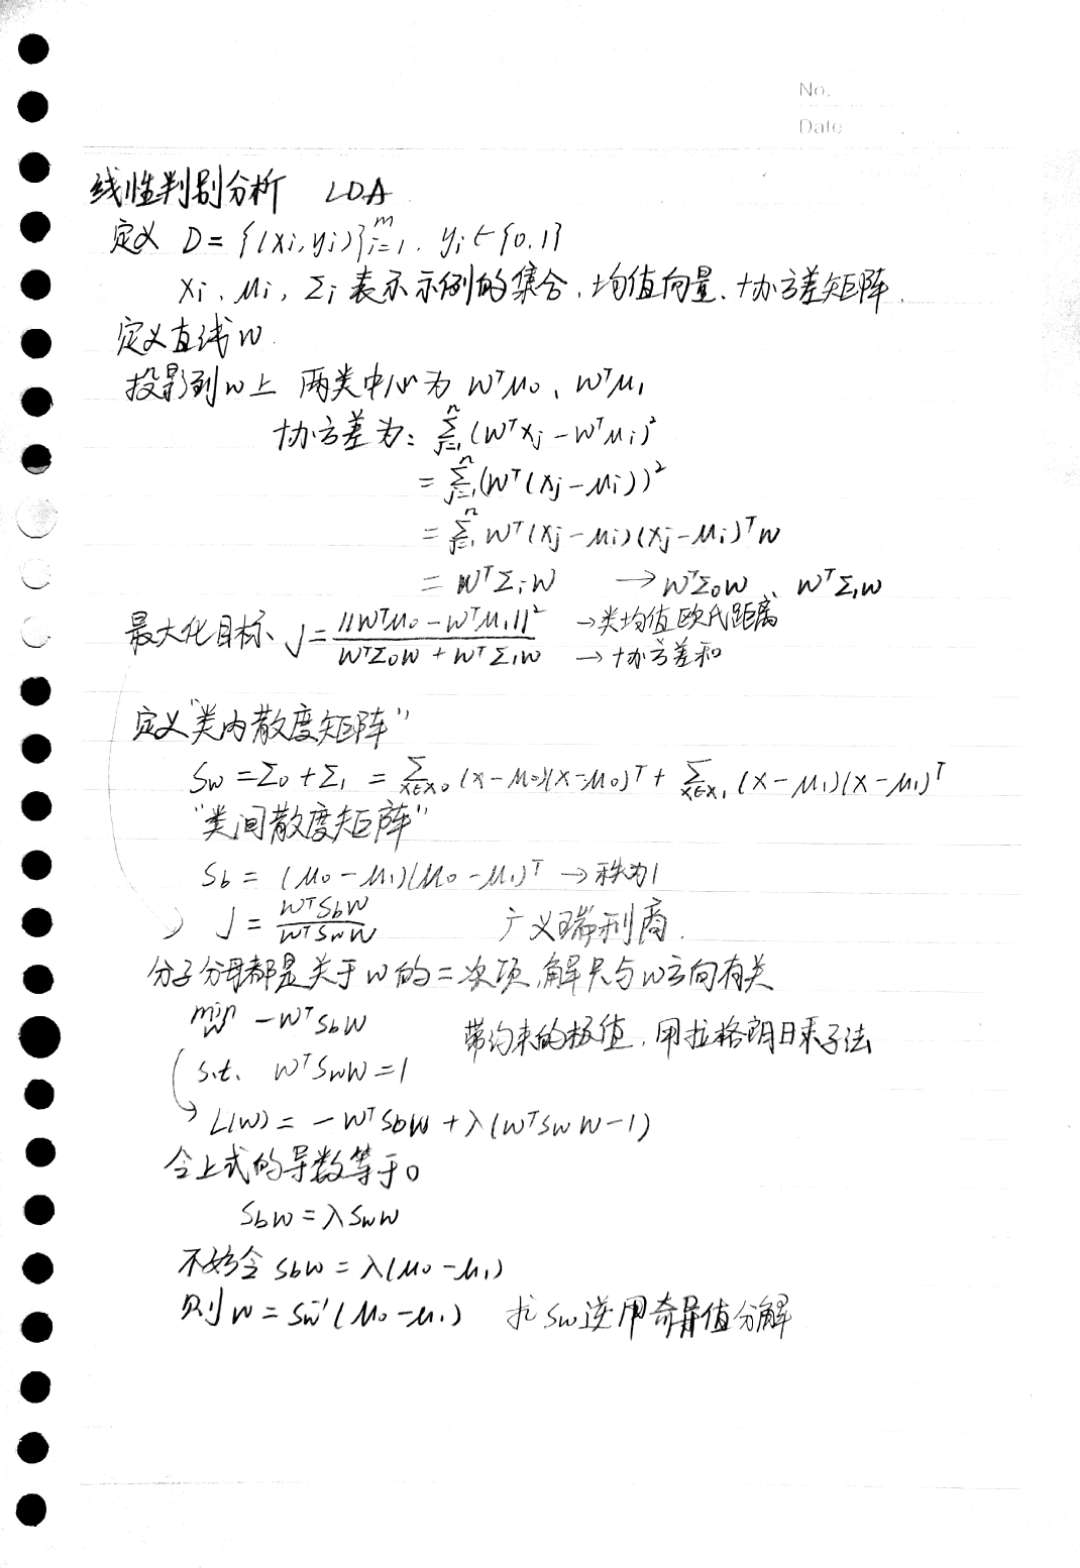 No.
Date
线性判别分析 LDA
定义 D = {(xi, yi)}ᵢ₌₁ᵐ, yi ∈ {0,1}
Xi、μi、Σi 表示示例的集合、均值向量、协方差矩阵.
定义直线w.
投影到w上 两类中心为 wᵀμ₀、wᵀμ₁
协方差为: Σⱼ₌₁ⁿ (wᵀxj - wᵀμi)²
= Σⱼ₌₁ⁿ (wᵀ(xj - μi))²
= Σⱼ₌₁ⁿ wᵀ(xj - μi)(xj - μi)ᵀw
= wᵀΣiw → wᵀΣ₀w、wᵀΣ₁w
最大化目标、J = ||wᵀμ₀ - wᵀμ₁||² / (wᵀΣ₀w + wᵀΣ₁w) → 类均值欧氏距离
→ 协方差和
定义"类内散度矩阵"
Sw = Σ₀ + Σ₁ = Σx∈X₀ (x-μ₀)(x-μ₀)ᵀ + Σx∈X₁ (x-μ₁)(x-μ₁)ᵀ
"类间散度矩阵"
Sb = (μ₀-μ₁)(μ₀-μ₁)ᵀ → 秩为1
J = wᵀSbw / wᵀSww 广义瑞利商.
分子分母都是关于w的二次项,解只与w方向有关
min w -wᵀSbw 带约束的极值,用拉格朗日乘子法
s.t. wᵀSww = 1
L(w) = -wᵀSbw + λ(wᵀSww - 1)
令上式的导数等于0
Sbw = λSww
不妨令 Sbw = λ(μ₀-μ₁)
则 w = Sw⁻¹(μ₀-μ₁) 求Sw逆用奇异值分解